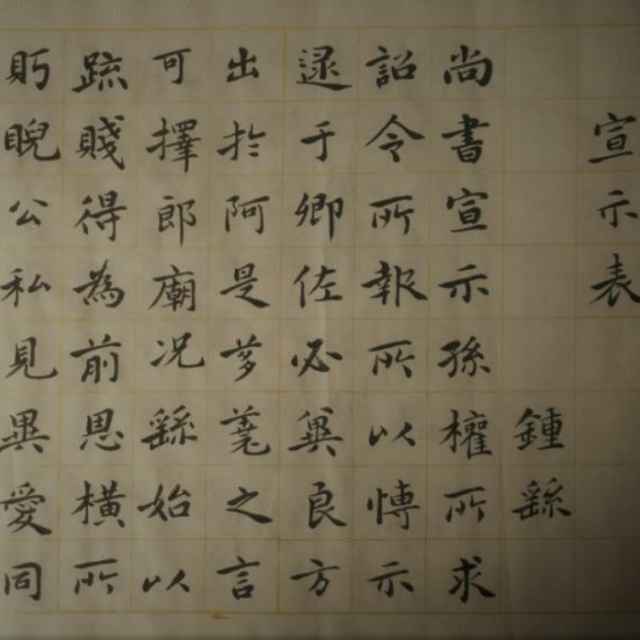 宣示表
鍾繇
尚書宣示孫權所求
詔令所報所以愽示
逮于卿佐必冀良方
出於阿是芻蕘之言
可擇郎廟况繇始以
疏賤得為前恩橫所
眄睨公私見異愛同